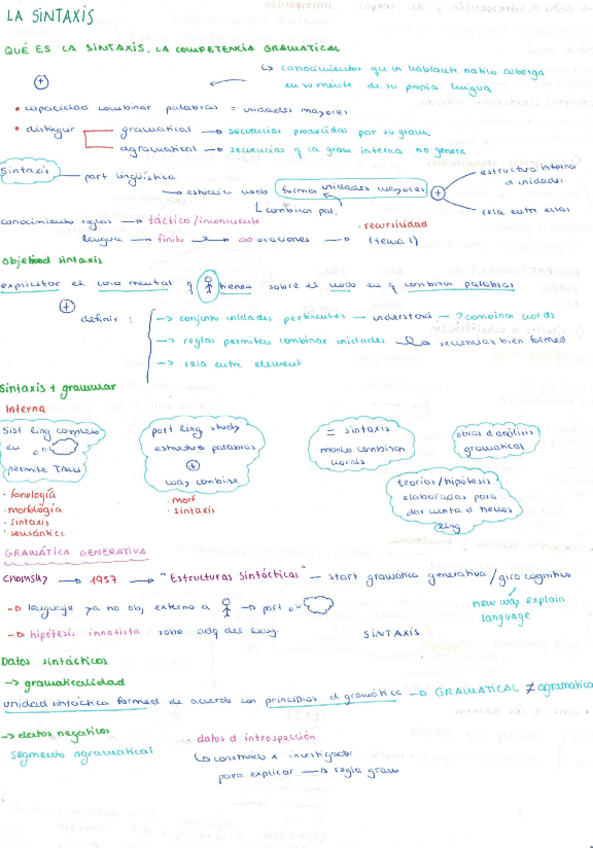 LA SINTAXIS
QUÉ ES LA SINTAXIS, LA COMPETENCIA GRAMATICAL
↳ conocimientos que un hablante nativo alberga
en su mente de su propia lengua
• capacidad combinar palabras = unidades mayores
• distinguir
gramatical → secuencias producidas por su gram.
agramatical → secuencias q la gram interna no genera
Sintaxis — part lingüística
→ estudia modo formar unidades mayores
estructura interna
d unidades
rela entre ellas
↳ combinar pal.
conocimiento reglas → táctico/inconsciente
· recursividad
lengua → finito → ∞ oraciones → (tema 1)
Objetivo sintaxis
explicitar el cono mental q tienen sobre el modo en q combina palabras
definir :
→ conjunto unidades pertinentes — understand — ? combinar words
→ reglas permiten combinar unidades → secuencias bien formed
→ rela entre element
Sintaxis + grammar
Interna
Sist ling complejo
en
permite
· fonología
· morfología
· sintaxis
· semántica
part ling study
estructura palabras
+
way combine
· morf
· sintaxis
= sintaxis
modo combinar
words
obras d análisis
gramatical
teorías/hipótesis
elaboradas para
dar cuenta d hechos
ling
GRAMÁTICA GENERATIVA
Chomsky → 1957 → "Estructuras Sintácticas" — start gramática generativa / giro cognitivo
new way explain
language
→ lenguaje ya no obj externo a → part
→ hipótesis innatista sobre adq del leng
SINTAXIS
Datos sintácticos
→ gramaticalidad
unidad sintáctica formed de acuerdo con principios d gramática → GRAMATICAL ≠ agramatical
→ datos negativos
segmento agramatical
· datos d introspección
↳ construido x investigador
para explicar → regla gram